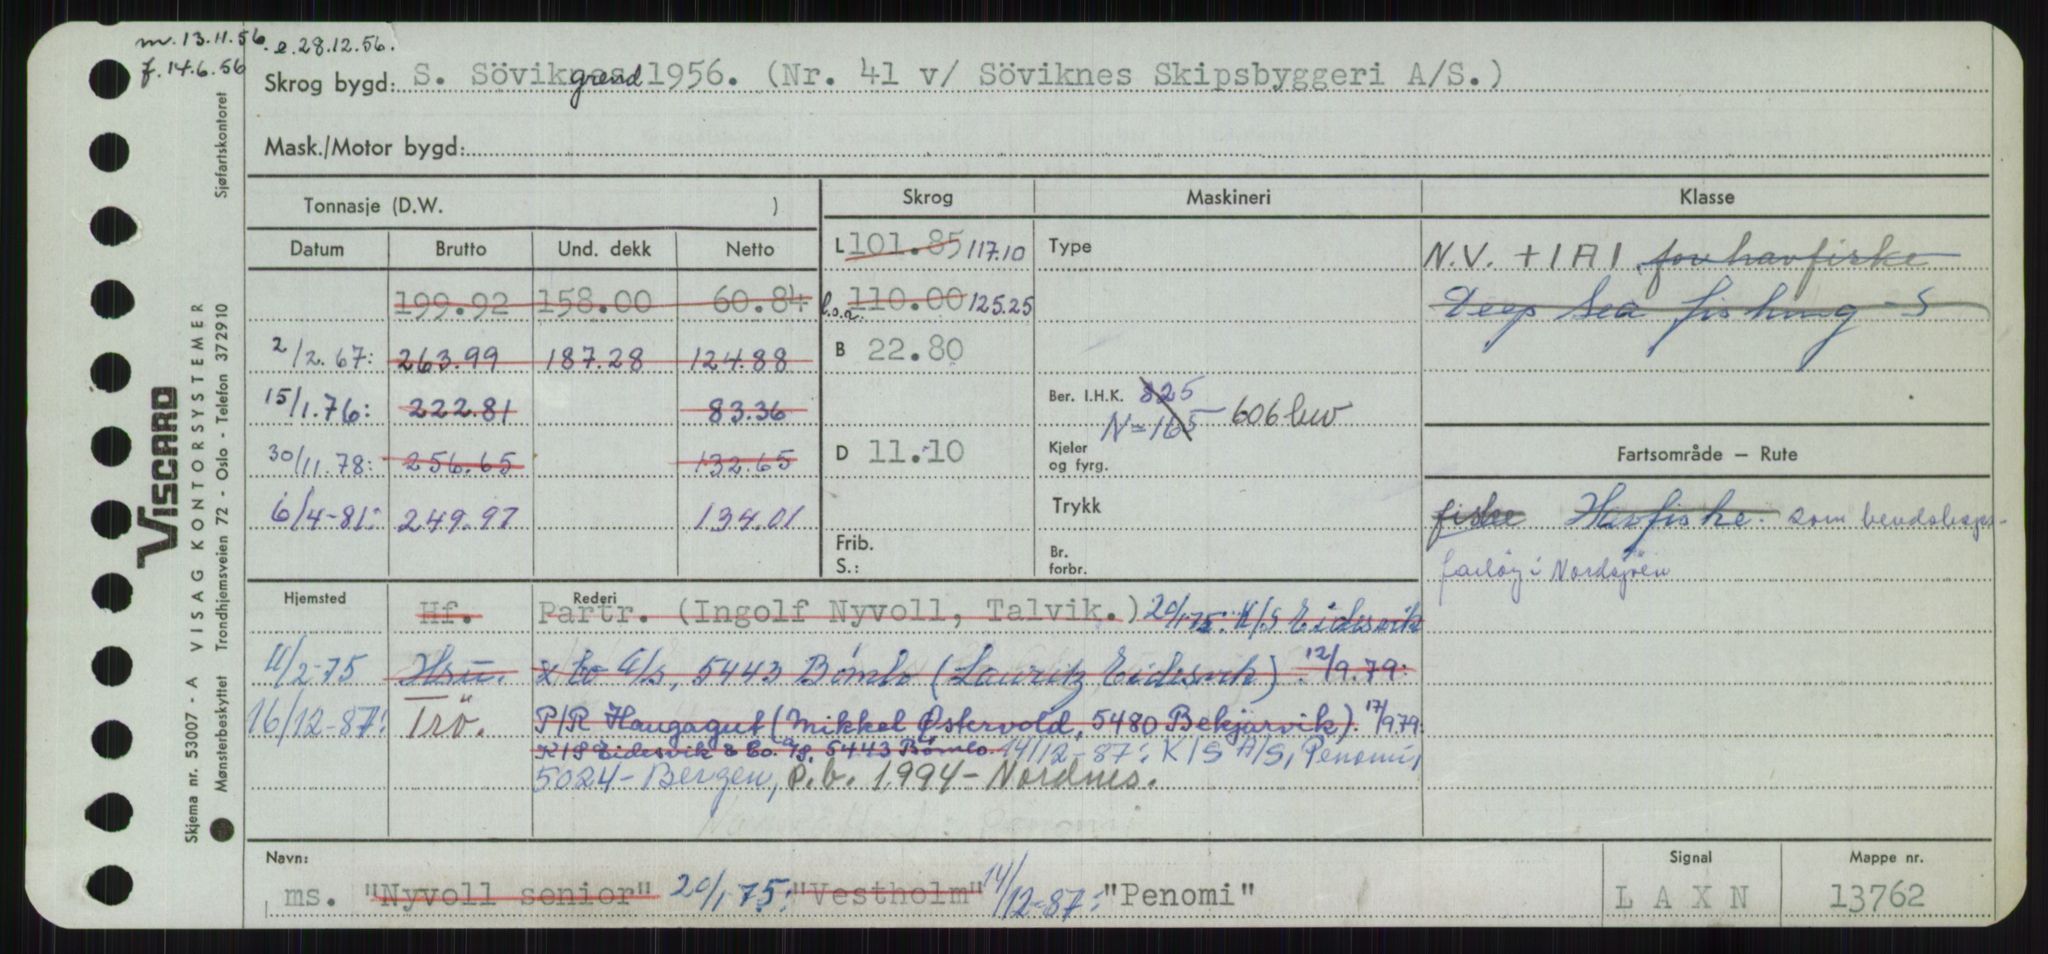 m. 13.11.56. e. 28.12.56.
f. 14.6.56
Skrog bygd: S. Söviknes grend 1956. (Nr. 41 v/ Söviknes Skipsbyggeri A/S.)
Mask./Motor bygd:
Tonnasje (D.W. )
Skrog Maskineri Klasse
Datum Brutto Und. dekk Netto
L 101.85 117.10 Type N.V. + 1A1 for havfiske
199.92 158.00 60.84 l.o.a. 110.00 125.25 Deep Sea fishing - S
2/2.67: 263.99 187.28 124.88 B 22.80
15/1.76: 222.81 83.36 Ber. I.H.K. 825
N=165 606 kw
30/11.78: 256.65 132.65 D 11.10 Kjeler og fyrg. Fartsområde – Rute
6/4-81: 249.97 134.01 Trykk fiske Havfiske. som
Frib. S.: Br. forbr. i Nordsjöen
Hjemsted Rederi
Hf. Partr. (Ingolf Nyvoll, Talvik.) 20/1.75: K/S Eidesvik
11/2-75 Hsu. & Co A/S, 5443 Bömlo (Lauritz Eidesvik). 12/9.79:
16/12-87: Trö. P/R Haugagut (Mikkel Østervold, 5480 Bekjarvik). 17/9.79:
K/S Eidesvik & Co. A/S, 5443 Bömlo. 14/12-87: K/S A/S, Penomi,
5024- Bergen, p.b. 1994- Nordnes.
Navn: Signal Mappe nr.
ms. "Nyvoll senior" 20/1 75: "Vestholm" 14/12-87: "Penomi" LAXN 13762
VISCARD
VISAG KONTORSYSTEMER
Skjema nr. 53007 - A
Mønsterbeskyttet Trondhjemsveien 72 - Oslo - Telefon 372910 Sjøfartskontoret